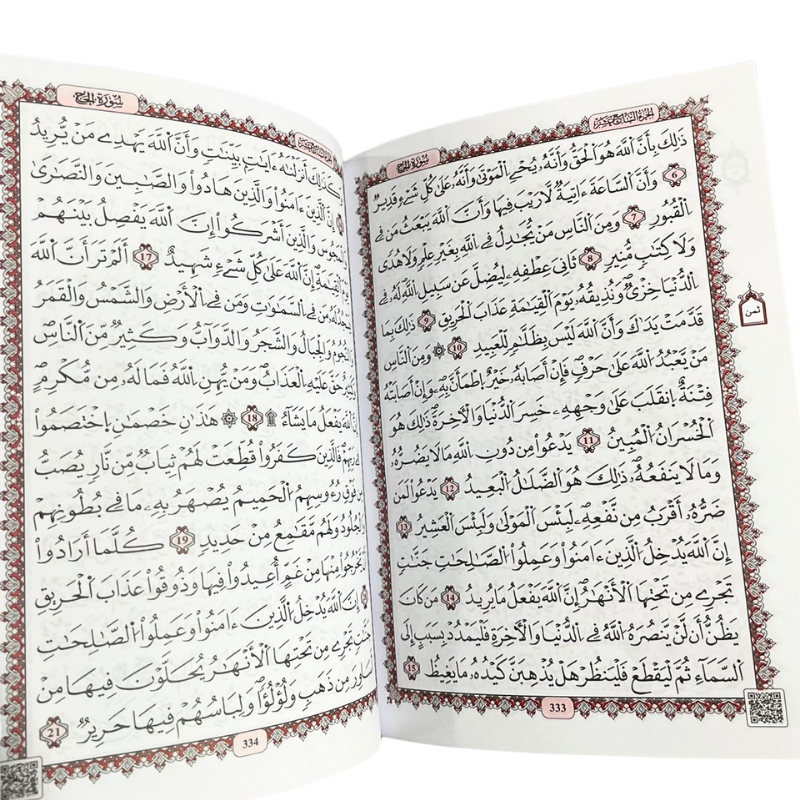 سُورَةُ الحَجِّ
الجزء السابع عشر
ذَٰلِكَ بِأَنَّ اَللَّهَ هُوَ اَلْحَقُّ وَأَنَّهُۥ يُحْيِ اِلْمَوْتَىٰ وَأَنَّهُۥ عَلَىٰ كُلِّ شَےْءٖ قَدِيرٌ
6 وَأَنَّ اَلسَّاعَةَ ءَاتِيَةٞ لَّا رَيْبَ فِيهَا وَأَنَّ اَللَّهَ يَبْعَثُ مَن فِے
اِلْقُبُورِ 7 وَمِنَ اَلنَّاسِ مَنْ يُّجَٰدِلُ فِے اِللَّهِ بِغَيْرِ عِلْمٖ وَلَا هُدىٗ
وَلَا كِتَٰبٖ مُّنِيرٖ 8 ثَانِيَ عِطْفِهِۦ لِيُضِلَّ عَن سَبِيلِ اِللَّهِ لَهُۥ فِے
اِلدُّنْيَا خِزْيٞ وَنُذِيقُهُۥ يَوْمَ اَلْقِيَٰمَةِ عَذَابَ اَلْحَرِيقِ 9 ذَٰلِكَ بِمَا
قَدَّمَتْ يَدَٰكَ وَأَنَّ اَللَّهَ لَيْسَ بِظَلَّٰمٖ لِّلْعَبِيدِ 10 ۞ وَمِنَ اَلنَّاسِ
مَنْ يَّعْبُدُ اُللَّهَ عَلَىٰ حَرْفٖ فَإِنْ أَصَابَهُۥ خَيْرٌ اِطْمَأَنَّ بِهِۦ وَإِنْ أَصَابَتْهُ
فِتْنَةٌ اِنقَلَبَ عَلَىٰ وَجْهِهِۦ خَسِرَ اَلدُّنْيَا وَالْأَخِرَةَ ذَٰلِكَ هُوَ
اَلْخُسْرَانُ اُلْمُبِينُ 11 يَدْعُواْ مِن دُونِ اِللَّهِ مَا لَا يَضُرُّهُۥ
وَمَا لَا يَنفَعُهُۥ ذَٰلِكَ هُوَ اَلضَّلَٰلُ اُلْبَعِيدُ 12 يَدْعُواْ لَمَن
ضَرُّهُۥ أَقْرَبُ مِن نَّفْعِهِۦ لَبِئْسَ اَلْمَوْلَىٰ وَلَبِئْسَ اَلْعَشِيرُ
إِنَّ اَللَّهَ يُدْخِلُ اُلذِينَ ءَامَنُواْ وَعَمِلُواْ اُلصَّٰلِحَٰتِ جَنَّٰتٖ
تَجْرِے مِن تَحْتِهَا اَلْأَنْهَٰرُ إِنَّ اَللَّهَ يَفْعَلُ مَا يُرِيدُ 14 مَن كَانَ
يَظُنُّ أَن لَّنْ يَّنصُرَهُ اُللَّهُ فِے اِلدُّنْيَا وَالْأَخِرَةِ فَلْيَمْدُدْ بِسَبَبٍ إِلَى
اَلسَّمَآءِ ثُمَّ لِيَقْطَعْ فَلْيَنظُرْ هَلْ يُذْهِبَنَّ كَيْدُهُۥ مَا يَغِيظُ 15
ثمن
333
سُورَةُ الحَجِّ
كَذَٰلِكَ أَنزَلْنَٰهُ ءَايَٰتِۢ بَيِّنَٰتٖ وَأَنَّ اَللَّهَ يَهْدِے مَنْ يُّرِيدُ
إِنَّ اَلذِينَ ءَامَنُواْ وَالذِينَ هَادُواْ وَالصَّٰبِينَ وَالنَّصَٰرَىٰ
وَالذِينَ أَشْرَكُواْ إِنَّ اَللَّهَ يَفْصِلُ بَيْنَهُمْ
اَلْقِيَٰمَةِ إِنَّ اَللَّهَ عَلَىٰ كُلِّ شَےْءٖ شَهِيدٌ 17 أَلَمْ تَرَ أَنَّ اَللَّهَ
يَسْجُدُ لَهُۥ مَن فِے اِلسَّمَٰوَٰتِ وَمَن فِے اِلْأَرْضِ وَالشَّمْسُ وَالْقَمَرُ
وَالنُّجُومُ وَالْجِبَالُ وَالشَّجَرُ وَالدَّوَآبُّ وَكَثِيرٞ مِّنَ اَلنَّاسِ
حَقَّ عَلَيْهِ اِلْعَذَابُ وَمَنْ يُّهِنِ اِللَّهُ فَمَا لَهُۥ مِن مُّكْرِمٍ
اَللَّهَ يَفْعَلُ مَا يَشَآءُ ۩ 18 ۞ هَٰذَٰنِ خَصْمَٰنِ اِخْتَصَمُواْ
فِے رَبِّهِمْ فَالذِينَ كَفَرُواْ قُطِّعَتْ لَهُمْ ثِيَابٞ مِّن نَّارٖ يُصَبُّ
مِن فَوْقِ رُءُوسِهِمُ اُلْحَمِيمُ يُصْهَرُ بِهِۦ مَا فِے بُطُونِهِمْ
وَالْجُلُودُ وَلَهُم مَّقَٰمِعُ مِنْ حَدِيدٖ 19 كُلَّمَا أَرَادُواْ
يَّخْرُجُواْ مِنْهَا مِنْ غَمٍّ اُعِيدُواْ فِيهَا وَذُوقُواْ عَذَابَ اَلْحَرِيقِ
إِنَّ اَللَّهَ يُدْخِلُ اُلذِينَ ءَامَنُواْ وَعَمِلُواْ اُلصَّٰلِحَٰتِ
جَنَّٰتٖ تَجْرِے مِن تَحْتِهَا اَلْأَنْهَٰرُ يُحَلَّوْنَ فِيهَا مِنْ
أَسَاوِرَ مِن ذَهَبٖ وَلُؤْلُؤاٗ وَلِبَاسُهُمْ فِيهَا حَرِيرٞ 21
334